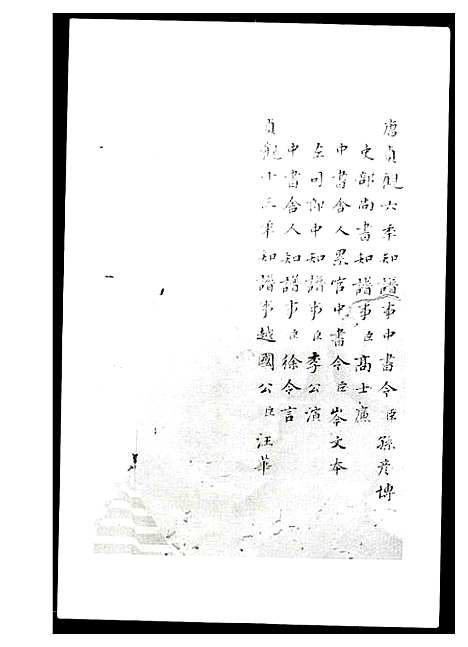 唐貞觀六年知譜事中書令臣孫彦博
吏部尚書知譜事臣高士廉
中書舍人累官中書令臣岑文本
左司郎中知譜事臣李公演
中書舍人知譜事臣徐令言
貞觀十三年知譜事越國公臣汪華